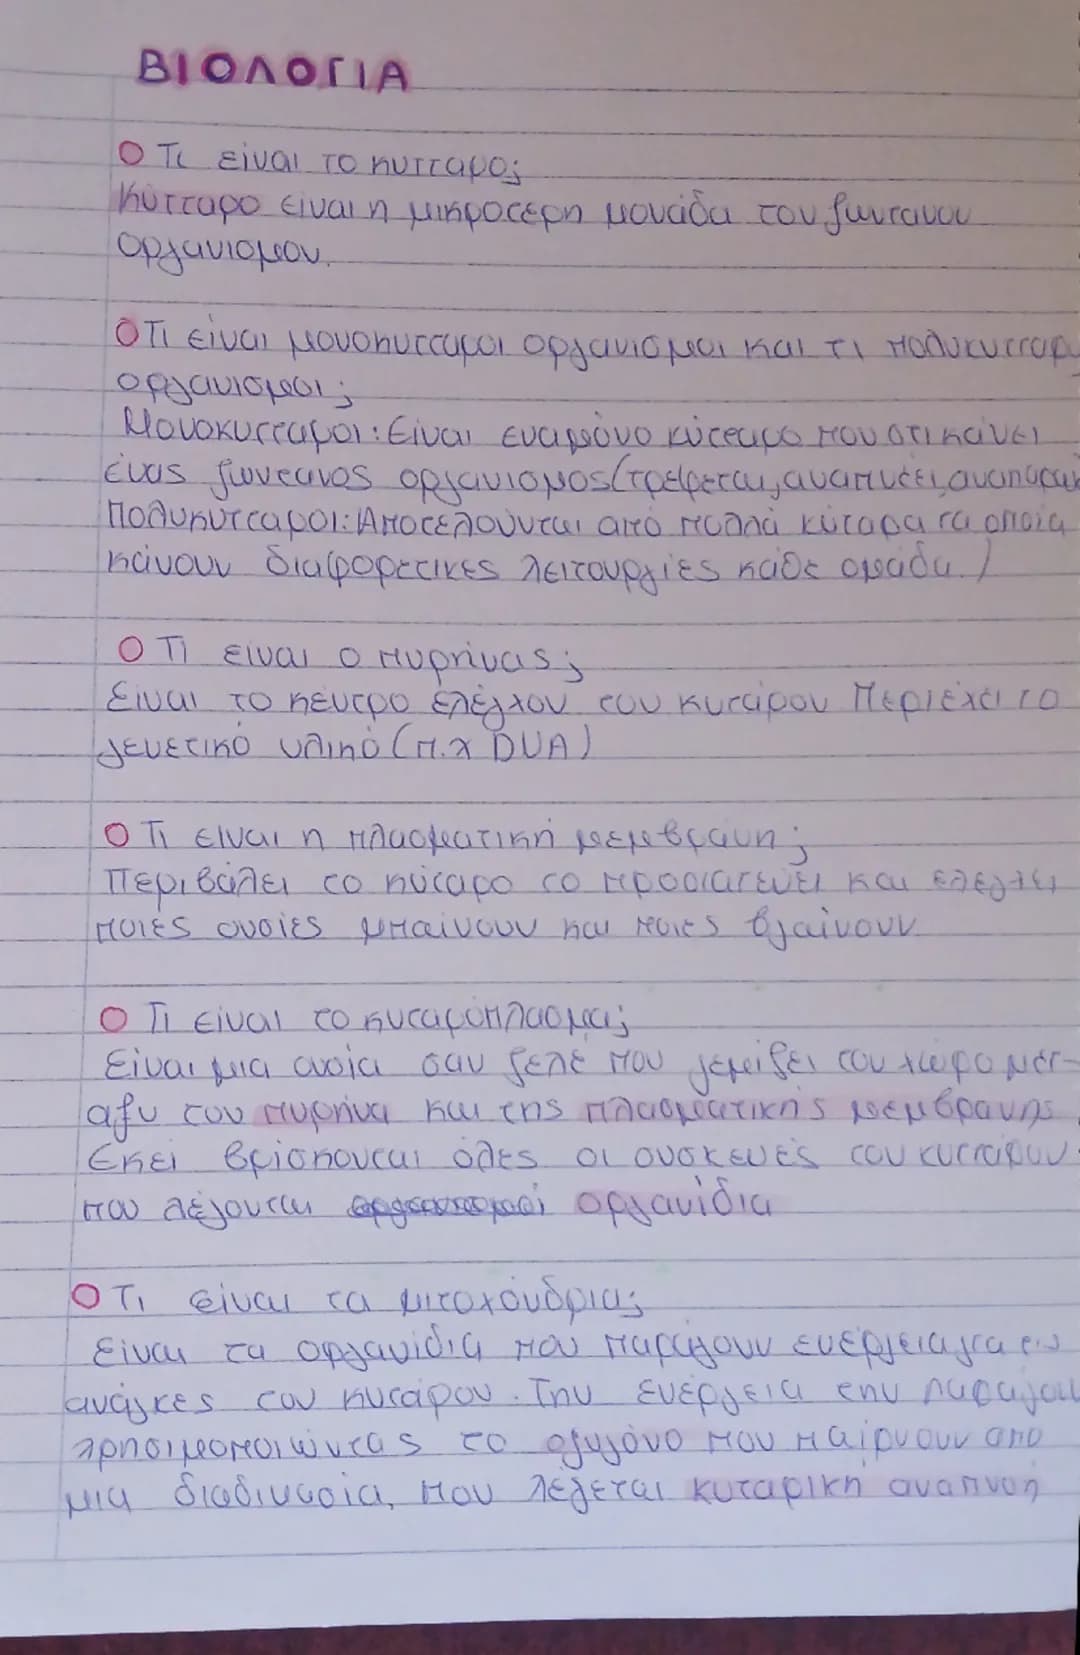 ΒΙΟΛΟΓΙΑ
Τι είναι το κυτταρο;
Κύτταρο είναι η μικροτερη μονάδα του ζωντανου
οργανισμου.
Τι είναι μονοκυτταροι οργανισμοι και τι πολυκυτταρ
οργανισμοι;
Μονοκυτταροι: Είναι ενα μόνο κύτταρο που οτι κάνει
ένας ζωντανος οργανισμος (τρέφεται, αναπνέει, αναπαρα
Πολυκυτταροι: Αποτελούνται από πολλά κύταρα τα οποία
κάνουν διαφορετικες λειτουργίες κάθε ομάδα.)
Τι είναι ο πυρήνας;
Είναι το κέντρο ελέγχου του κυτάρου Περιέχει το
γενετικό υλικό (π.χ DNA)
Τι είναι η πλασματική μεμβράνη;
Περιβάλει το κύταρο το προστατεύει και ελεγχει
ποιες ουσίες μπαίνουν και ποιες βγαίνουν
Τι είναι το κυταρόπλασμα;
Είναι μια ουσία σαν ζελέ που γεμίζει τον χώρο μετ-
αξυ του πυρήνα και της πλασματικής μεμβρανης
Εκεί βρίσκονται όλες οι συσκευές του κυττάρου
που λέγονται οργανίδια
Τι είναι τα μιτοχόνδρια;
Είναι τα οργανίδια που παράγουν ενέργεια για τις
ανάγκες του κυτάρου. Την ενέργεια την παραγου
χρησιμοποιώντας το οξυγόνο που παίρνουν απο
μια διαδικασία, που λέγεται κυταρικη αναπνοή